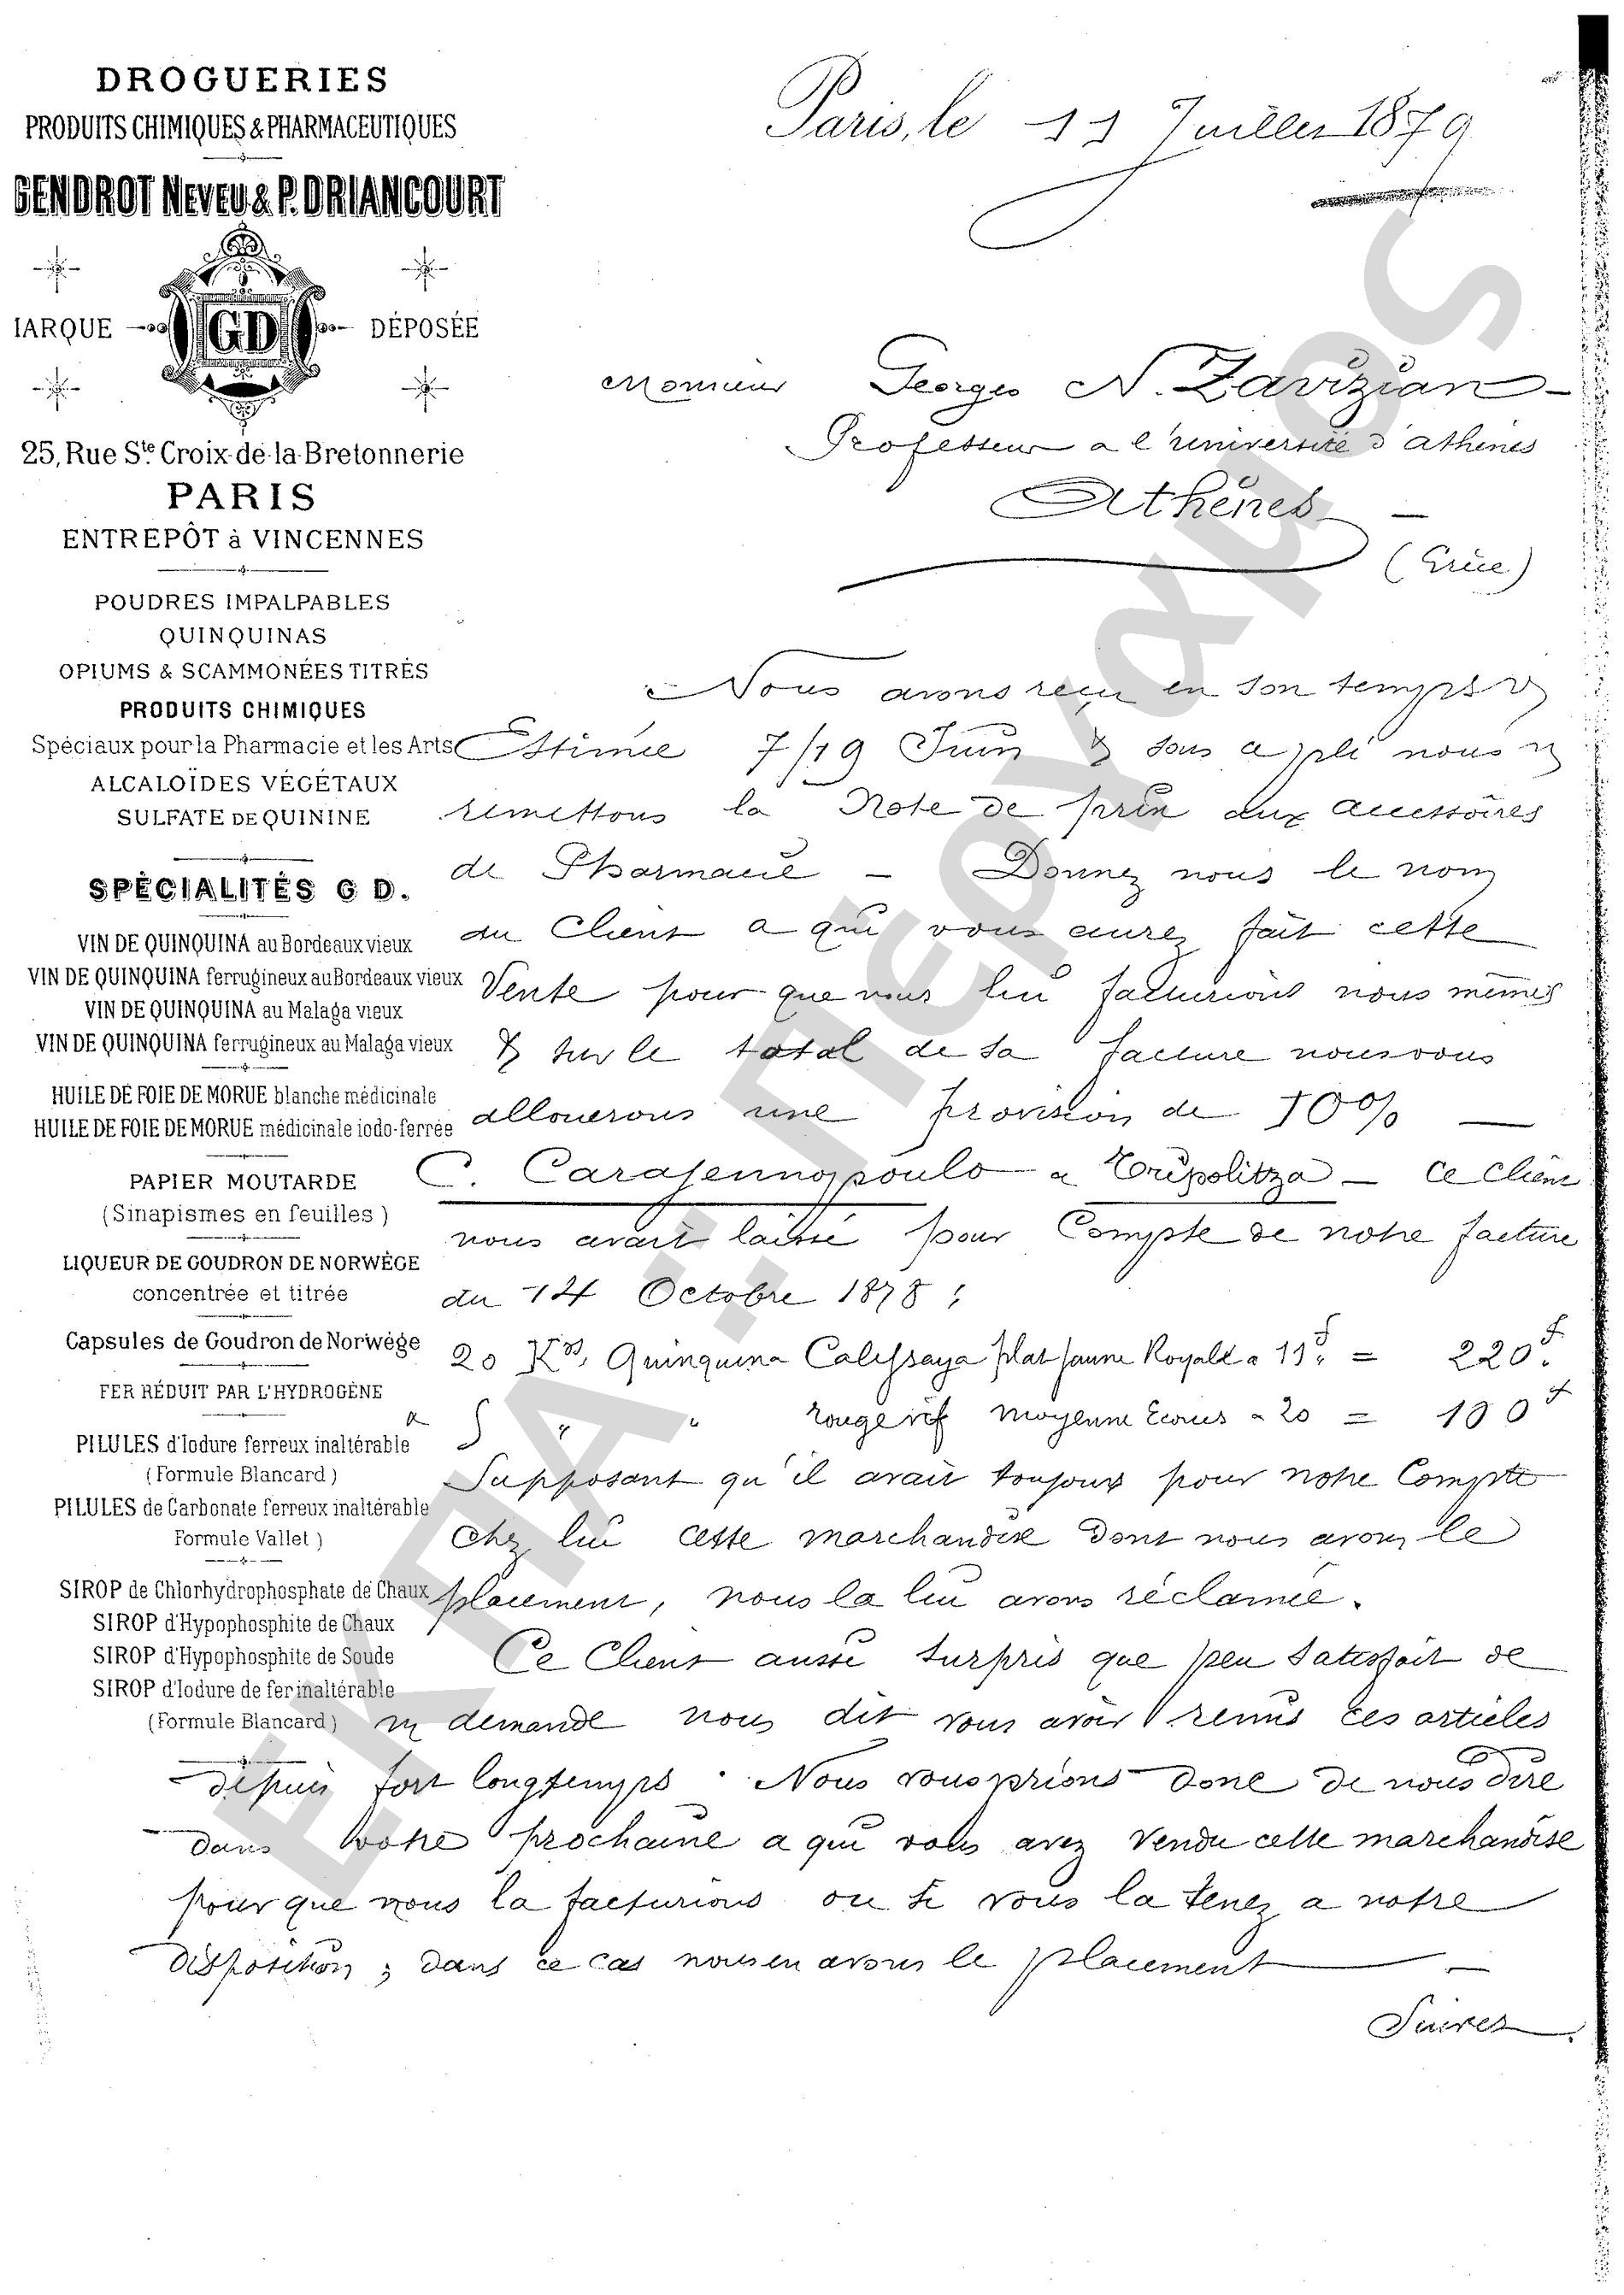 DROGUERIES
PRODUITS CHIMIQUES & PHARMACEUTIQUES
GENDROT NEVEU & P. DRIANCOURT
IARQUE GD DÉPOSÉE
25, Rue Ste Croix-de-la-Bretonnerie
PARIS
ENTREPÔT à VINCENNES
POUDRES IMPALPABLES
QUINQUINAS
OPIUMS & SCAMMONÉES TITRÉS
PRODUITS CHIMIQUES
Spéciaux pour la Pharmacie et les Arts
ALCALOÏDES VÉGÉTAUX
SULFATE DE QUININE
SPÉCIALITÉS G D.
VIN DE QUINQUINA au Bordeaux vieux
VIN DE QUINQUINA ferrugineux au Bordeaux vieux
VIN DE QUINQUINA au Malaga vieux
VIN DE QUINQUINA ferrugineux au Malaga vieux
HUILE DE FOIE DE MORUE blanche médicinale
HUILE DE FOIE DE MORUE médicinale iodo-ferrée
PAPIER MOUTARDE
(Sinapismes en feuilles)
LIQUEUR DE GOUDRON DE NORWÈGE
concentrée et titrée
Capsules de Goudron de Norwège
FER RÉDUIT PAR L'HYDROGÈNE
PILULES d'Iodure ferreux inaltérable
(Formule Blancard)
PILULES de Carbonate ferreux inaltérable
Formule Vallet)
SIROP de Chlorhydrophosphate de Chaux
SIROP d'Hypophosphite de Chaux
SIROP d'Hypophosphite de Soude
SIROP d'Iodure de fer inaltérable
(Formule Blancard)
Paris, le 11 Juillet 1879
Monsieur Georges N. Zavizian
Professeur a l'université d'athènes
Athènes
(Grèce)
Nous avons reçu en son temps
Estimée 7/19 Juin & sous ce pli nous
remettons la Note de prix aux accessoires
de Pharmacie - Donnez nous le nom
du Client a qui vous aurez fait cette
Vente pour que nous lui facturions nous mêmes
& sur le total de sa facture nous vous
allouerons une provision de 10%
C. Carajennopoulo a Tripolitza - ce client
nous avait laissé pour Compte de notre facture
du 14 Octobre 1878 ;
20 Kos, Quinquina Calissaya plat jaune Royale a 11f. = 220f.
5 " " rouge vif moyenne Ecorces a 20 = 100f
Supposant qu'il avait toujours pour notre Compte
chez lui cette marchandise dont nous avons le
placement, nous la lui avons réclamée.
Ce Client aussi surpris que peu satisfait de
demande nous dit vous avoir remis ces articles
depuis fort longtemps. Nous vous prions donc de nous dire
dans votre prochaine a qui vous avez vendu cette marchandise
pour que nous la facturions ou si vous la tenez a notre
disposition ; dans ce cas nous en avons le placement
Suivez
ΕΚΠΑ.: Πέργαμος